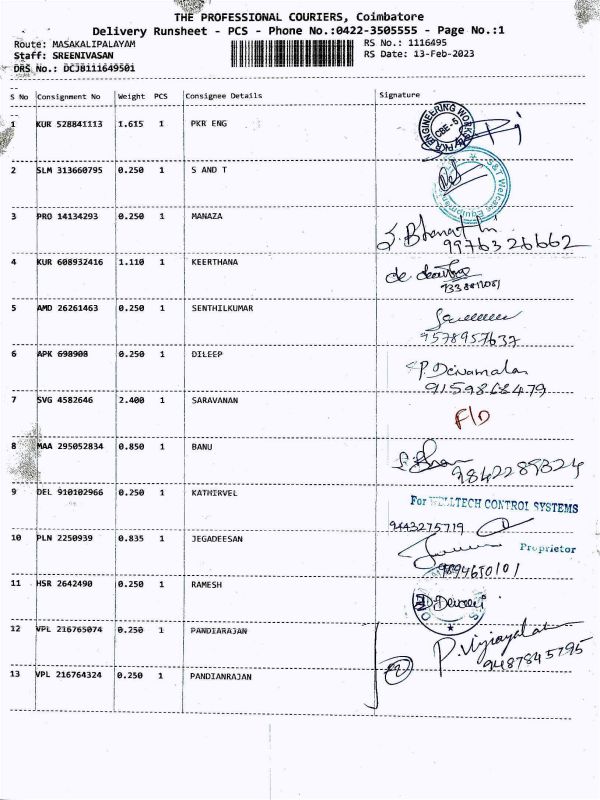 THE PROFESSIONAL COURIERS, Coimbatore
Delivery Runsheet - PCS - Phone No.:0422-3505555 - Page No.:1
Route: MASAKALIPALAYAM
Staff: SREENIVASAN
DRS No.: DCJB111649501
RS No.: 1116495
RS Date: 13-Feb-2023
S No Consignment No Weight PCS Consignee Details Signature
1 KUR 528841113 1.615 1 PKR ENG
ENGINEERING WORKS
CBE-5
2 SLM 313660795 0.250 1 S AND T
S&T Welcare Equipments
3 PRO 14134293 0.250 1 MANAZA
9976326662
4 KUR 608932416 1.110 1 KEERTHANA
5 AMD 26261463 0.250 1 SENTHILKUMAR
9578957637
6 APK 698908 0.250 1 DILEEP
9159868479
7 SVG 4582646 2.400 1 SARAVANAN
F/D
8 MAA 295052834 0.850 1 BANU
9842289324
9 DEL 910102966 0.250 1 KATHIRVEL
For WELLTECH CONTROL SYSTEMS
9443275719
10 PLN 2250939 0.835 1 JEGADEESAN
Proprietor
9894650101
11 HSR 2642490 0.250 1 RAMESH
D.Deivani
12 VPL 216765074 0.250 1 PANDIARAJAN
P. Vijayalatha
9487845795
13 VPL 216764324 0.250 1 PANDIANRAJAN